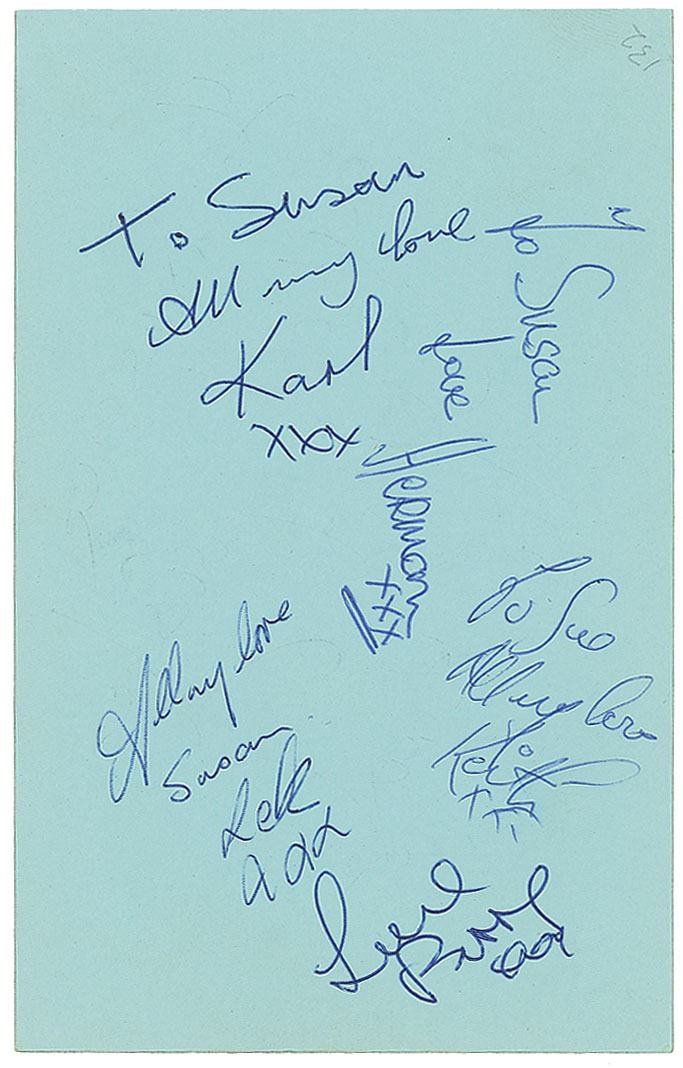 To Susan
All my love
Karl
xxx
To Susan
Love
Herman
xxx
To Sue
All my love
Keith
xxx
All my love
Susan
Lek
xxx
Love
132